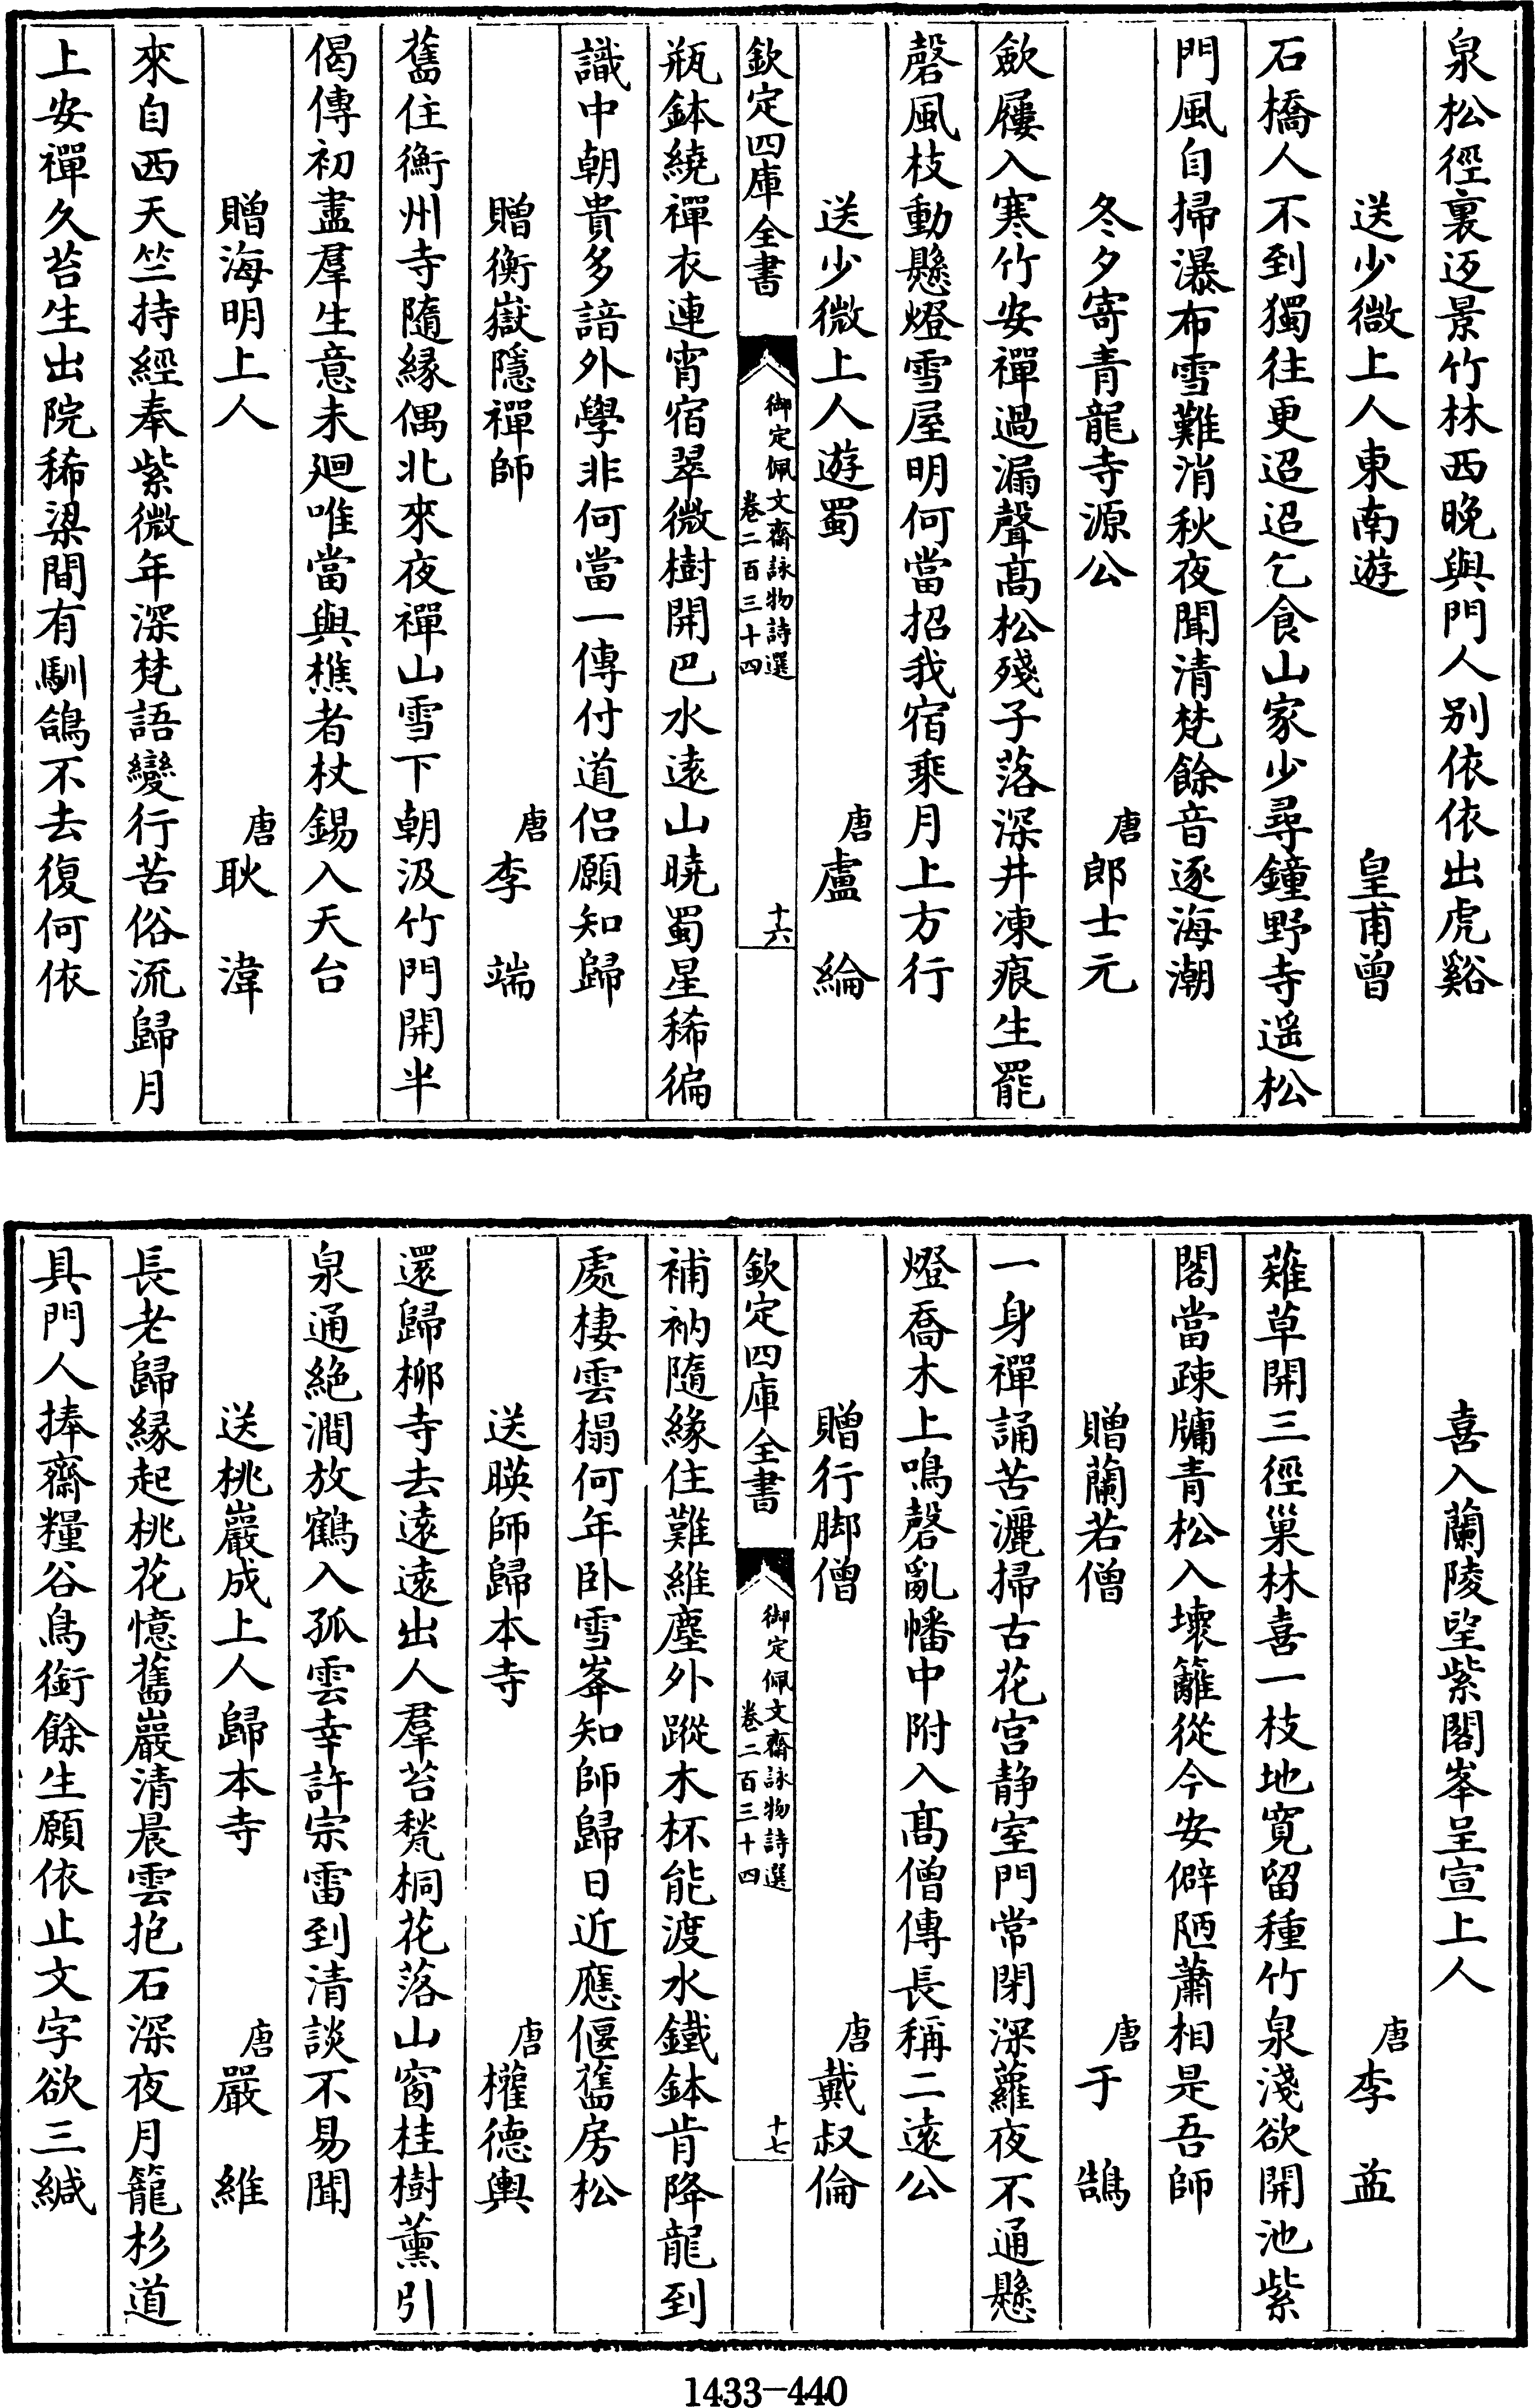 泉松徑裏返景竹林西晚與門人别依依出虎谿
送少微上人東南遊 皇甫曾
石橋人不到獨往更迢迢乞食山家少尋鐘野寺遥松
門風自掃瀑布雪難消秋夜聞清梵餘音逐海潮
冬夕寄青龍寺源公 唐郎士元
斂屨入寒竹安禪過漏聲髙松殘子落深井凍痕生罷
磬風枝動懸燈雪屋明何當招我宿乘月上方行
送少微上人遊蜀 唐盧綸
瓶鉢繞禪衣連宵宿翠微樹開巴水遠山曉蜀星稀徧
識中朝貴多諳外學非何當一傳付道侣願知歸
贈衡嶽隱禪師 唐李端
舊住衡州寺隨縁偶北來夜禪山雪下朝汲竹門開半
偈傳初盡羣生意未廻唯當與樵者杖錫入天台
贈海明上人 唐耿湋
來自西天竺持經奉紫微年深梵語變行苦俗流歸月
上安禪久苔生出院稀梁間有馴鴿不去復何依
欽定四庫全書
御定佩文齋詠物詩選
卷二百三十四
十六
喜入蘭陵望紫閣峯呈宣上人
唐李益
薙草開三徑巢林喜一枝地寛留種竹泉淺欲開池紫
閣當疎牖青松入壞籬從今安僻陋蕭相是吾師
贈蘭若僧 唐于鵠
一身禪誦苦灑掃古花宫静室門常閉深蘿夜不通懸
燈喬木上鳴磬亂幡中附入髙僧傳長稱二遠公
贈行脚僧 唐戴叔倫
補衲隨緣住難維塵外蹤木杯能渡水鐵鉢肯降龍到
處棲雲榻何年卧雪峯知師歸日近應偃舊房松
送暎師歸本寺 唐權德輿
還歸柳寺去遠遠出人羣苔甃桐花落山窗桂樹薰引
泉通絶澗放鶴入孤雲幸許宗雷到清談不易聞
送桃巖成上人歸本寺 唐嚴維
長老歸縁起桃花憶舊巖清晨雲抱石深夜月籠杉道
具門人捧齋糧谷鳥銜餘生願依止文字欲三緘
欽定四庫全書
御定佩文齋詠物詩選
卷二百三十四
十七
1433-440